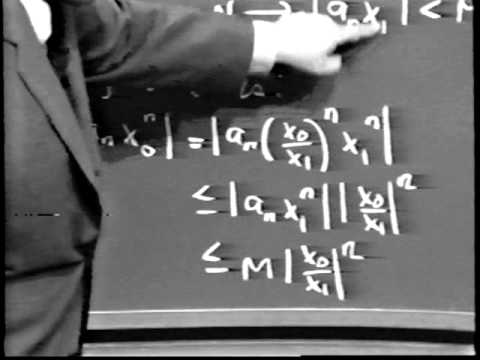 → |aₙx₁| < M
ₙ x₀ⁿ| = |aₙ(x₀/x₁)ⁿ x₁ⁿ|
≤ |aₙ x₁ⁿ| |x₀/x₁|ⁿ
≤ M |x₀/x₁|ⁿ